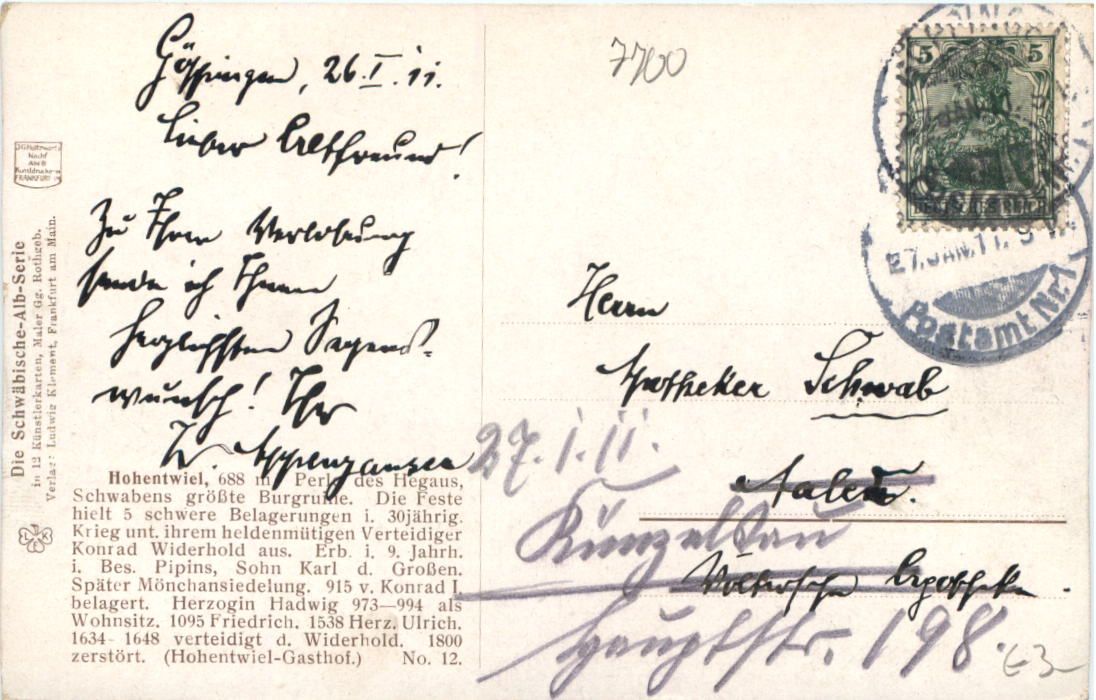 Göppingen, 26.I.11.
Lieber Altfreund!
Zu Ihrer Verlobung
sende ich Ihnen
herzlichsten Segens-
wunsch! Ihr
7700
5 5
DEUTSCHES REICH
27.JAN.11.9
Postamt Nr.1
Herrn
Apotheker Schwab
Aalen.
27.I.11.
Künzelsau
Hauptstr. 198.
Die Schwäbische-Alb-Serie
in 12 Künstlerkarten, Maler Gg. Rothgeb.
Verlag: Ludwig Klement, Frankfurt am Main.
FRANKFURT
LK
Hohentwiel, 688 m Perle des Hegaus,
Schwabens größte Burgruine. Die Feste
hielt 5 schwere Belagerungen i. 30jährig.
Krieg unt. ihrem heldenmütigen Verteidiger
Konrad Widerhold aus. Erb. i. 9. Jahrh.
i. Bes. Pipins, Sohn Karl d. Großen.
Später Mönchansiedelung. 915 v. Konrad I.
belagert. Herzogin Hadwig 973—994 als
Wohnsitz. 1095 Friedrich. 1538 Herz. Ulrich.
1634-1648 verteidigt d. Widerhold. 1800
zerstört. (Hohentwiel-Gasthof.) No. 12.